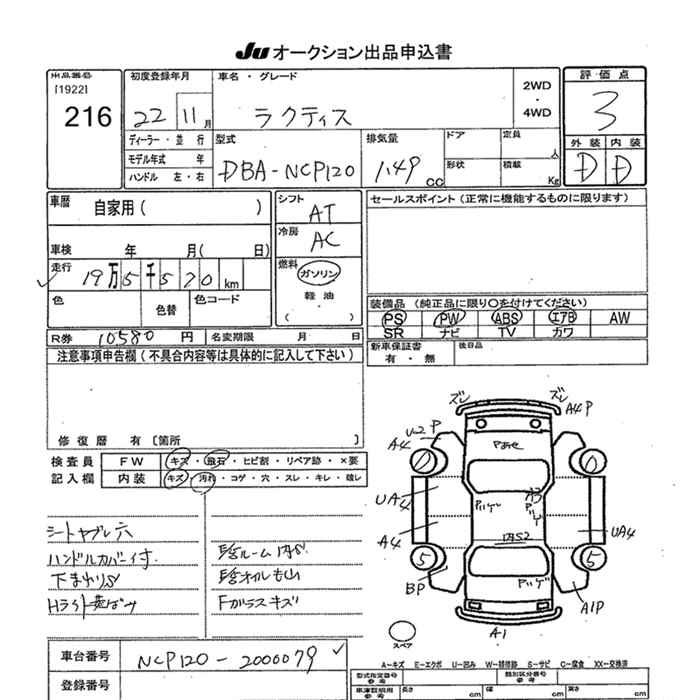 Ju オークション出品申込書
出品番号
[1922]
216
初度登録年月
22 11月
車名・グレード
ラクティス
2WD
・
4WD
評価点
3
外装 内装
D D
ディーラー・並行
モデル年式 年
ハンドル 左・右
型式
DBA-NCP120
排気量
1.49 cc
ドア
形状
定員 人
積載 Kg
車歴 自家用( )
車検 年 月( 日)
走行 19万5千570 km
色
色替
色コード
シフト
AT
冷房
AC
燃料
ガソリン
軽油
( )
セールスポイント(正常に機能するものに限ります)
装備品(純正品に限り○を付けてください)
PS PW ABS エアB AW
SR ナビ TV カワ
新車保証書
有・無
後日品
R券 10580 円
名変期限 月 日
注意事項申告欄(不具合内容等は具体的に記入して下さい)
修復歴 有 〔箇所 〕
検査員
記入欄
FW キズ・飛石・ヒビ割・リペア跡・×要
内装 キズ・汚れ・コゲ・穴・スレ・キレ・破レ
シートヤブレ穴
ハンドルカバー付
下まわりS
Hライト
Fガラスキズ
ズレ
ズレ
A4P
P
A4
UA4
A4
BP
UA4
A1P
A1
スペア
A-キズ E-エクボ U-凹み W-補修跡 S-サビ C-腐食 XX-交換済
車台番号 NCP120-2000079
登録番号
型式指定番号
参考
類別区分番号
参考
車庫証明用
参考
長さ cm
幅 cm
高さ cm